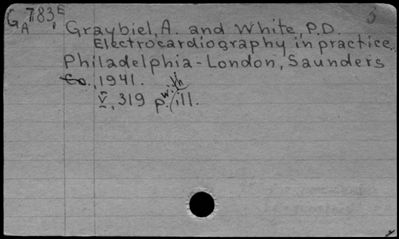 GA 783 E
Graybiel, A. and White, P.D.
Electrocardiography in practice.
Philadelphia-London, Saunders
Co., 1941.
V, 319 p. with ill.